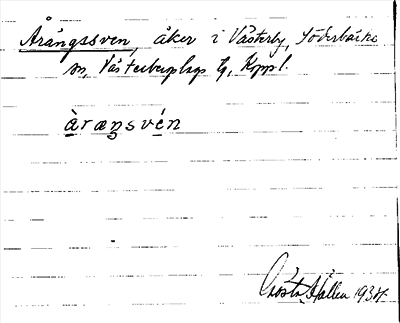 Årängssven, åker i Västerby, Söderbärke
sn, Västerbergslags tg, Kopp.l.
àraŋsvén
Gösta Hallen 1934.